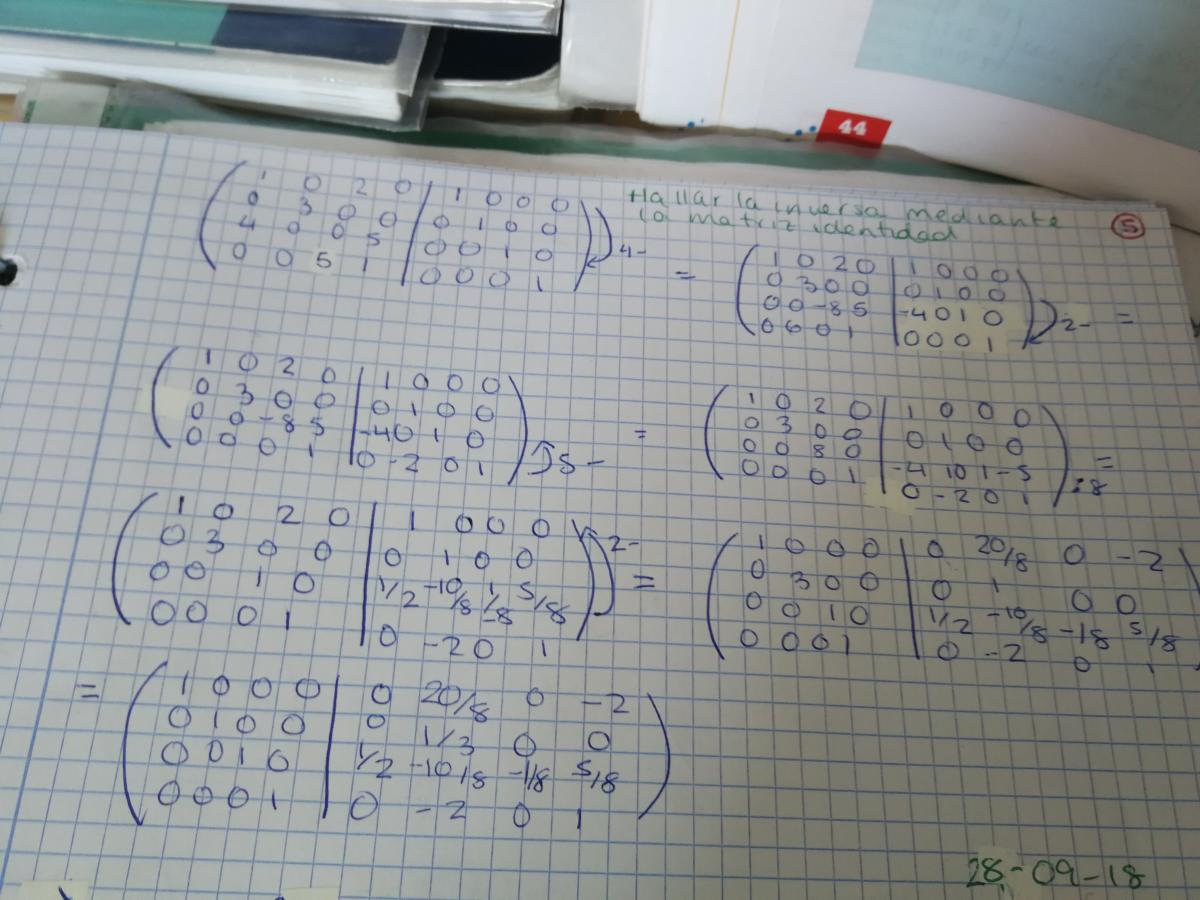 44
Hallar la inversa mediante
la matriz identidad
5
1 0 2 0 | 1 0 0 0
0 3 0 0 | 0 1 0 0
4 0 0 5 | 0 0 1 0
0 0 5 1 | 0 0 0 1
4-
=
1 0 2 0 | 1 0 0 0
0 3 0 0 | 0 1 0 0
0 0 -8 5 | -4 0 1 0
0 0 0 1 | 0 0 0 1
2- =
1 0 2 0 | 1 0 0 0
0 3 0 0 | 0 1 0 0
0 0 -8 5 | -4 0 1 0
0 0 0 1 | 0 -2 0 1
5-
=
1 0 2 0 | 1 0 0 0
0 3 0 0 | 0 1 0 0
0 0 8 0 | -4 10 1 -5
0 0 0 1 | 0 -2 0 1
:8 =
1 0 2 0 | 1 0 0 0
0 3 0 0 | 0 1 0 0
0 0 1 0 | 1/2 -10/8 1/-8 5/8
0 0 0 1 | 0 -2 0 1
2-
=
1 0 0 0 | 0 20/8 0 -2
0 3 0 0 | 0 1 0 0
0 0 1 0 | 1/2 -10/8 -18 5/8
0 0 0 1 | 0 -2 0 1
=
1 0 0 0 | 0 20/8 0 -2
0 1 0 0 | 0 1/3 0 0
0 0 1 0 | 1/2 -10/8 -1/8 5/8
0 0 0 1 | 0 -2 0 1
28-09-18